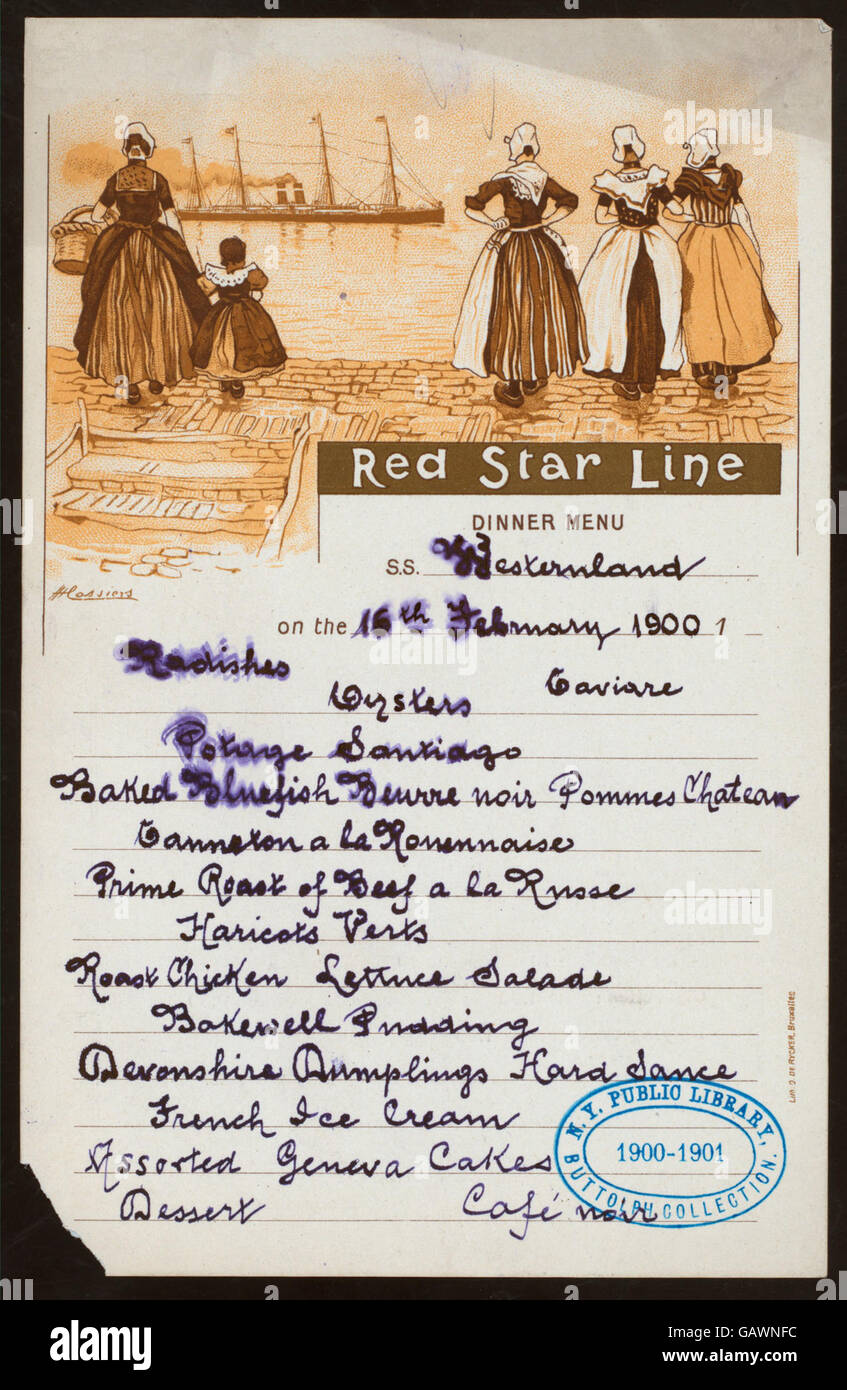 Red Star Line
DINNER MENU
S.S. Westernland
on the 16th February 1900 1
H Cassiers
Radishes
Oysters Caviare
Potage Santiago
Baked Bluefish Beurre noir Pommes Chateau
Canneton a la Rouennaise
Prime Roast of Beef a la Russe
Haricots Verts
Roast Chicken Lettuce Salade
Bakewell Pudding
Devonshire Dumplings Hard Sauce
French Ice Cream
Assorted Geneva Cakes
Dessert Café noir
N.Y. PUBLIC LIBRARY,
1900-1901
BUTTOLPH COLLECTION.
Lith. J. DE RYCKER, Bruxelles
alamy
alamy
alamy stock photo
alamy stock photo
alamy
Image ID: GAWNFC
www.alamy.com